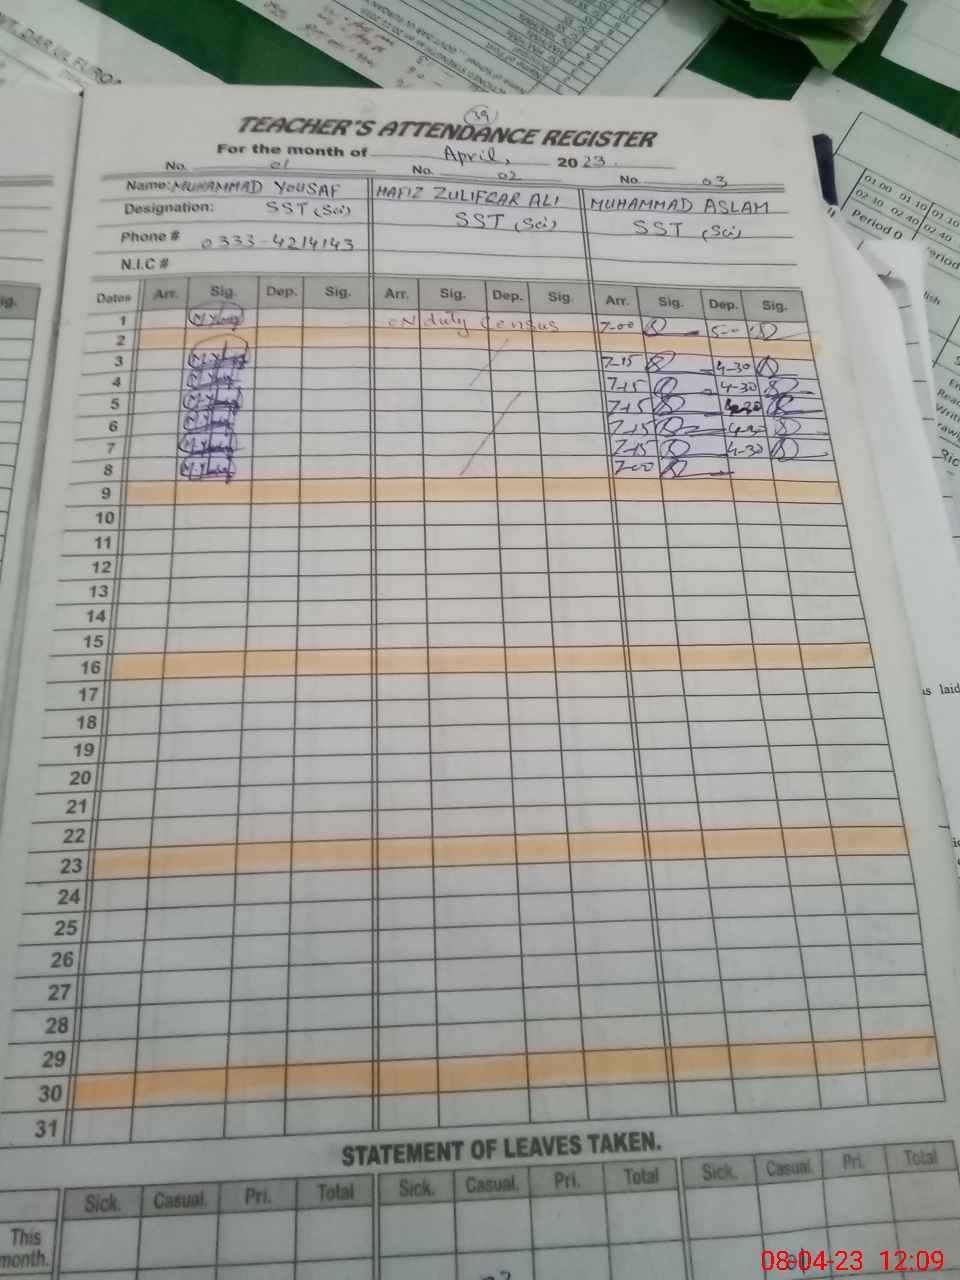 39
TEACHER'S ATTENDANCE REGISTER
For the month of April, 2023.
No. 01 No. 02 No. 03
Name: MUHAMMAD YOUSAF HAFIZ ZULIFCAR ALI MUHAMMAD ASLAM
Designation: SST (Sci) SST (Sci) SST (Sci)
Phone # 0333-4214143
N.I.C #
Dates Arr. Sig. Dep. Sig. Arr. Sig. Dep. Sig. Arr. Sig. Dep. Sig.
1 ON duty Census 7-00
2
3 7-15 4-30
4 7-15 4-30
5 7-15 4-30
6 7-15
7 7-15 4-30
8 7-00
9
10
11
12
13
14
15
16
17
18
19
20
21
22
23
24
25
26
27
28
29
30
31
STATEMENT OF LEAVES TAKEN.
Sick. Casual. Pri. Total Sick. Casual. Pri. Total Sick. Casual. Pri. Total
This
month.
01.00 01.10 01.10
02.10 02.40 02.40
Period 0
as laid
08-04-23 12:09